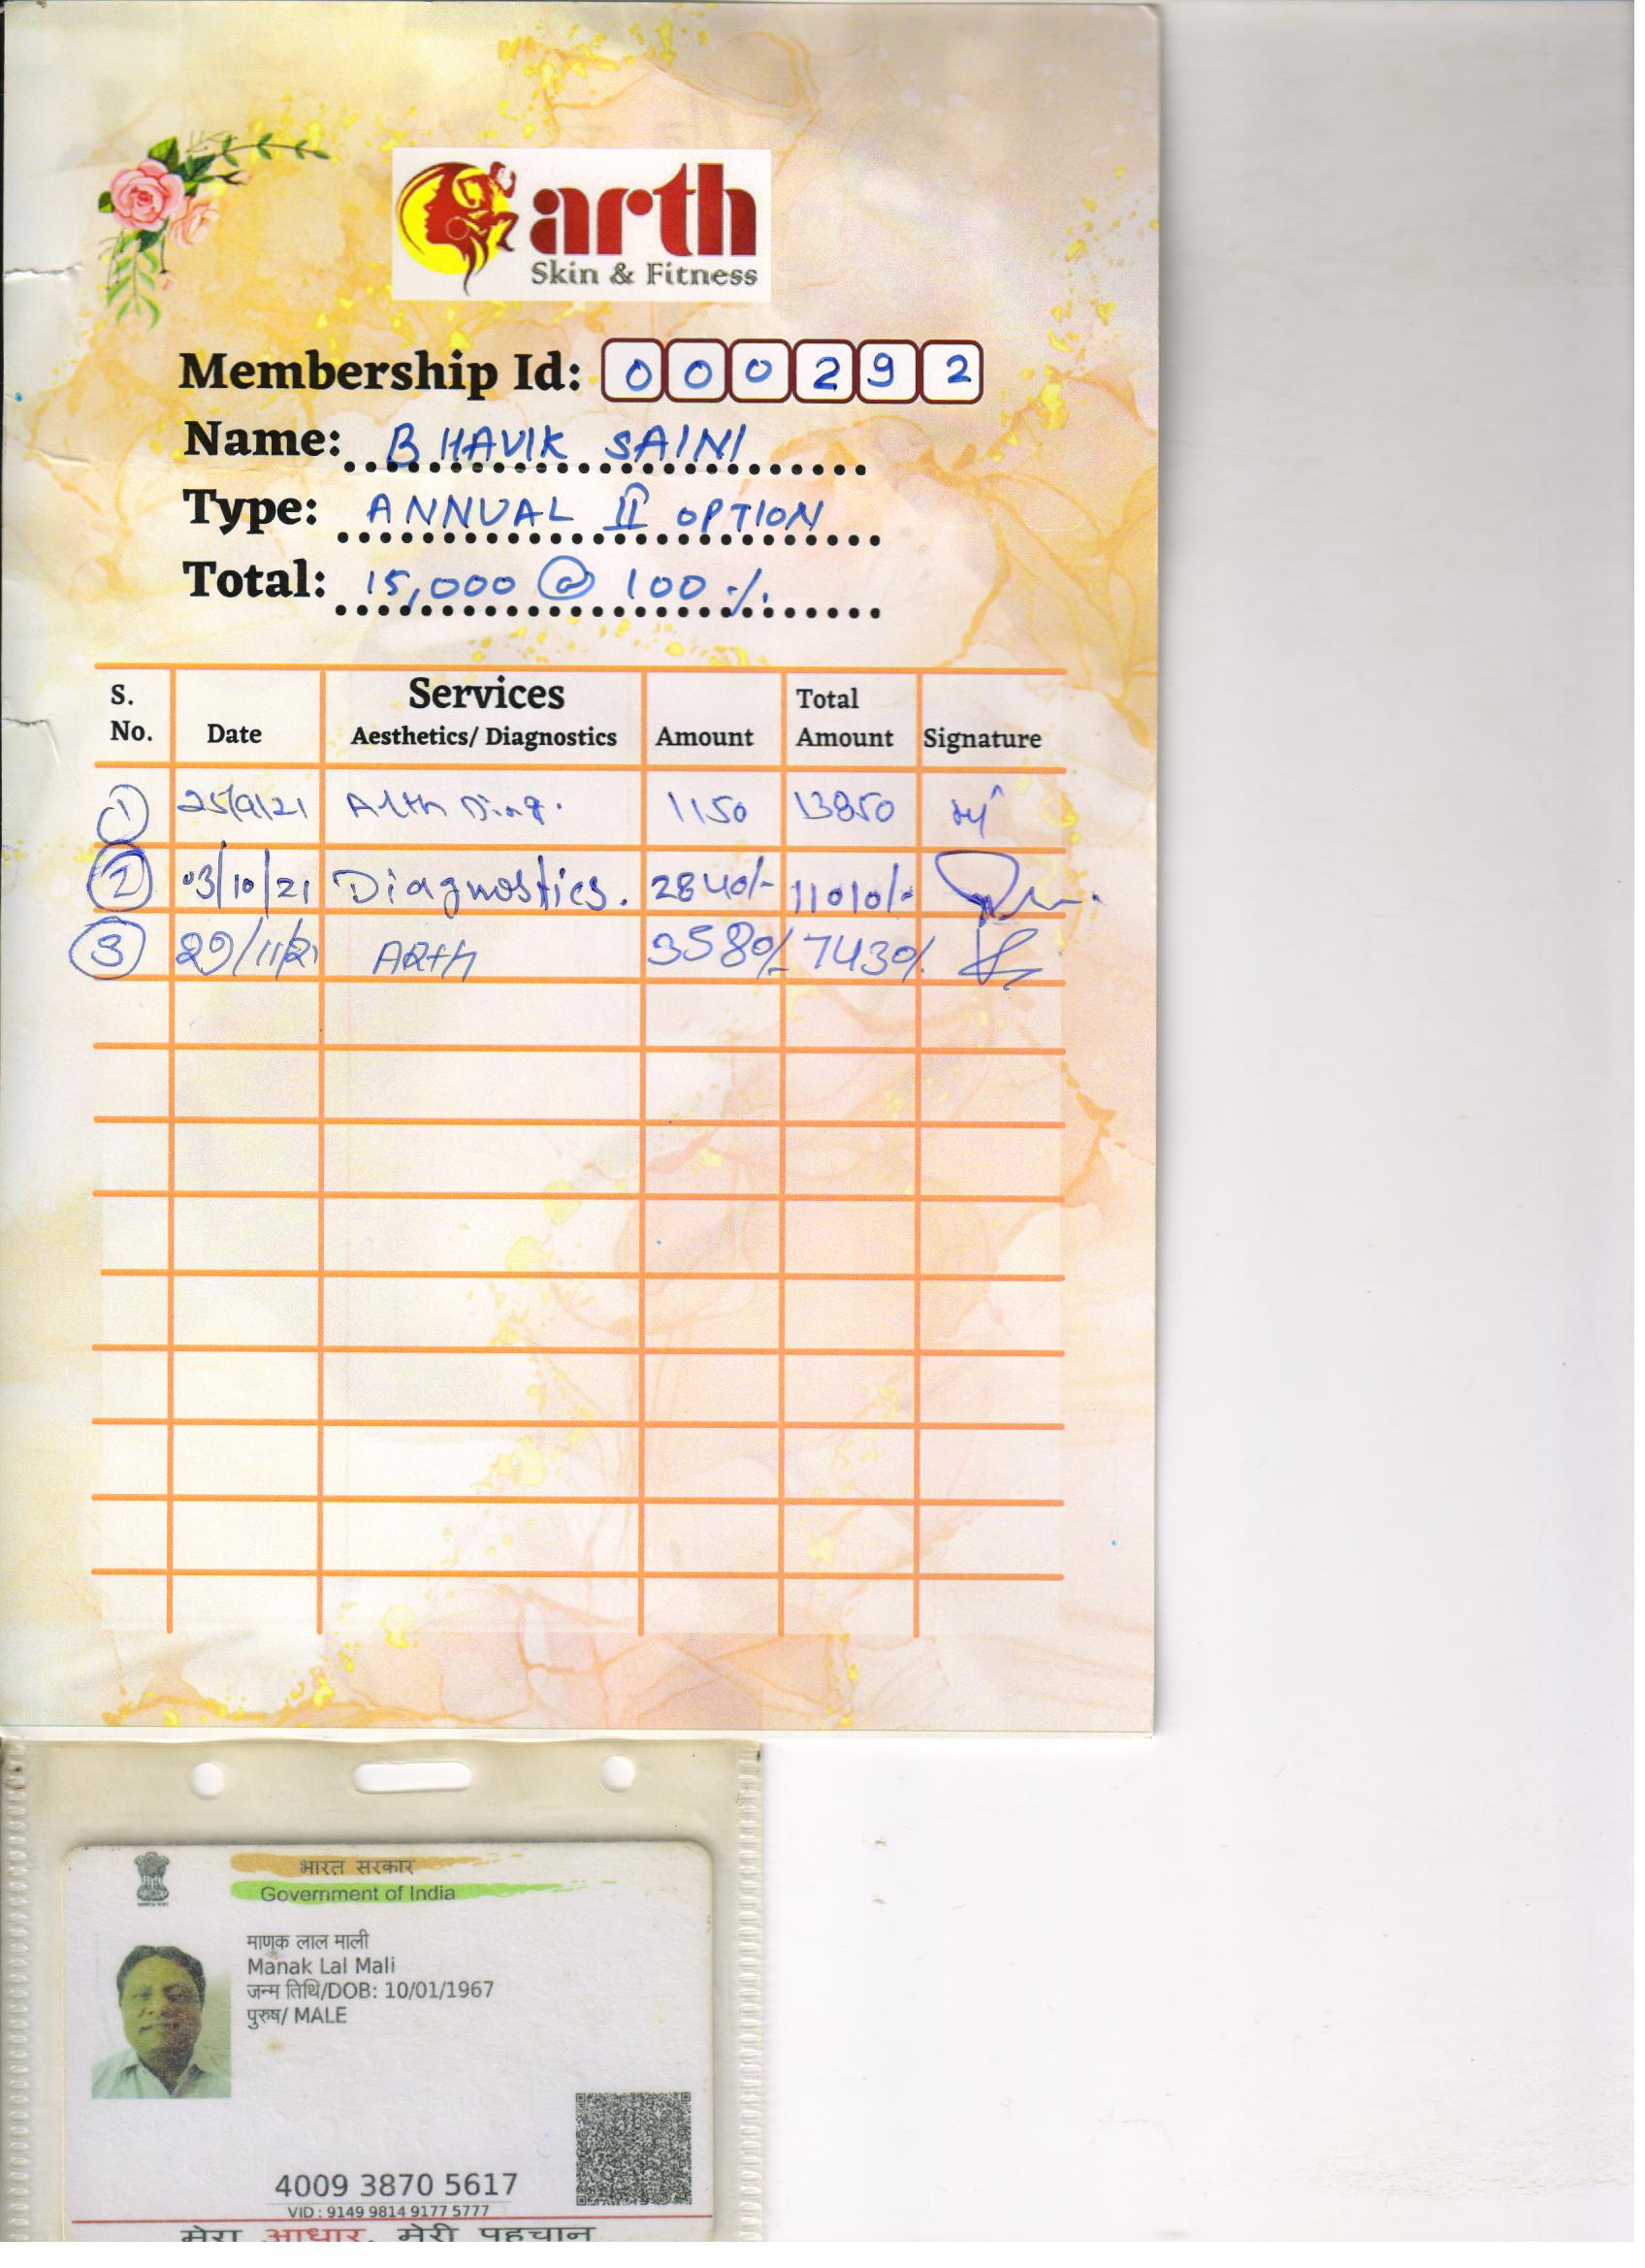 arth
Skin & Fitness
Membership Id: 000292
Name: BHAVIK SAINI
Type: ANNUAL II OPTION
Total: 15,000 @ 100 %
S. No. Date Services Aesthetics/ Diagnostics Amount Total Amount Signature
1 25/9/21 Arth Diag. 1150 13850
2 03/10/21 Diagnostics. 2840/- 11010/-
3 29/11/21 ARTH 3580/- 7430/-
भारत सरकार
Government of India
माणक लाल माली
Manak Lal Mali
जन्म तिथि/DOB: 10/01/1967
पुरुष/ MALE
4009 3870 5617
VID : 9149 9814 9177 5777
मेरा आधार, मेरी पहचान